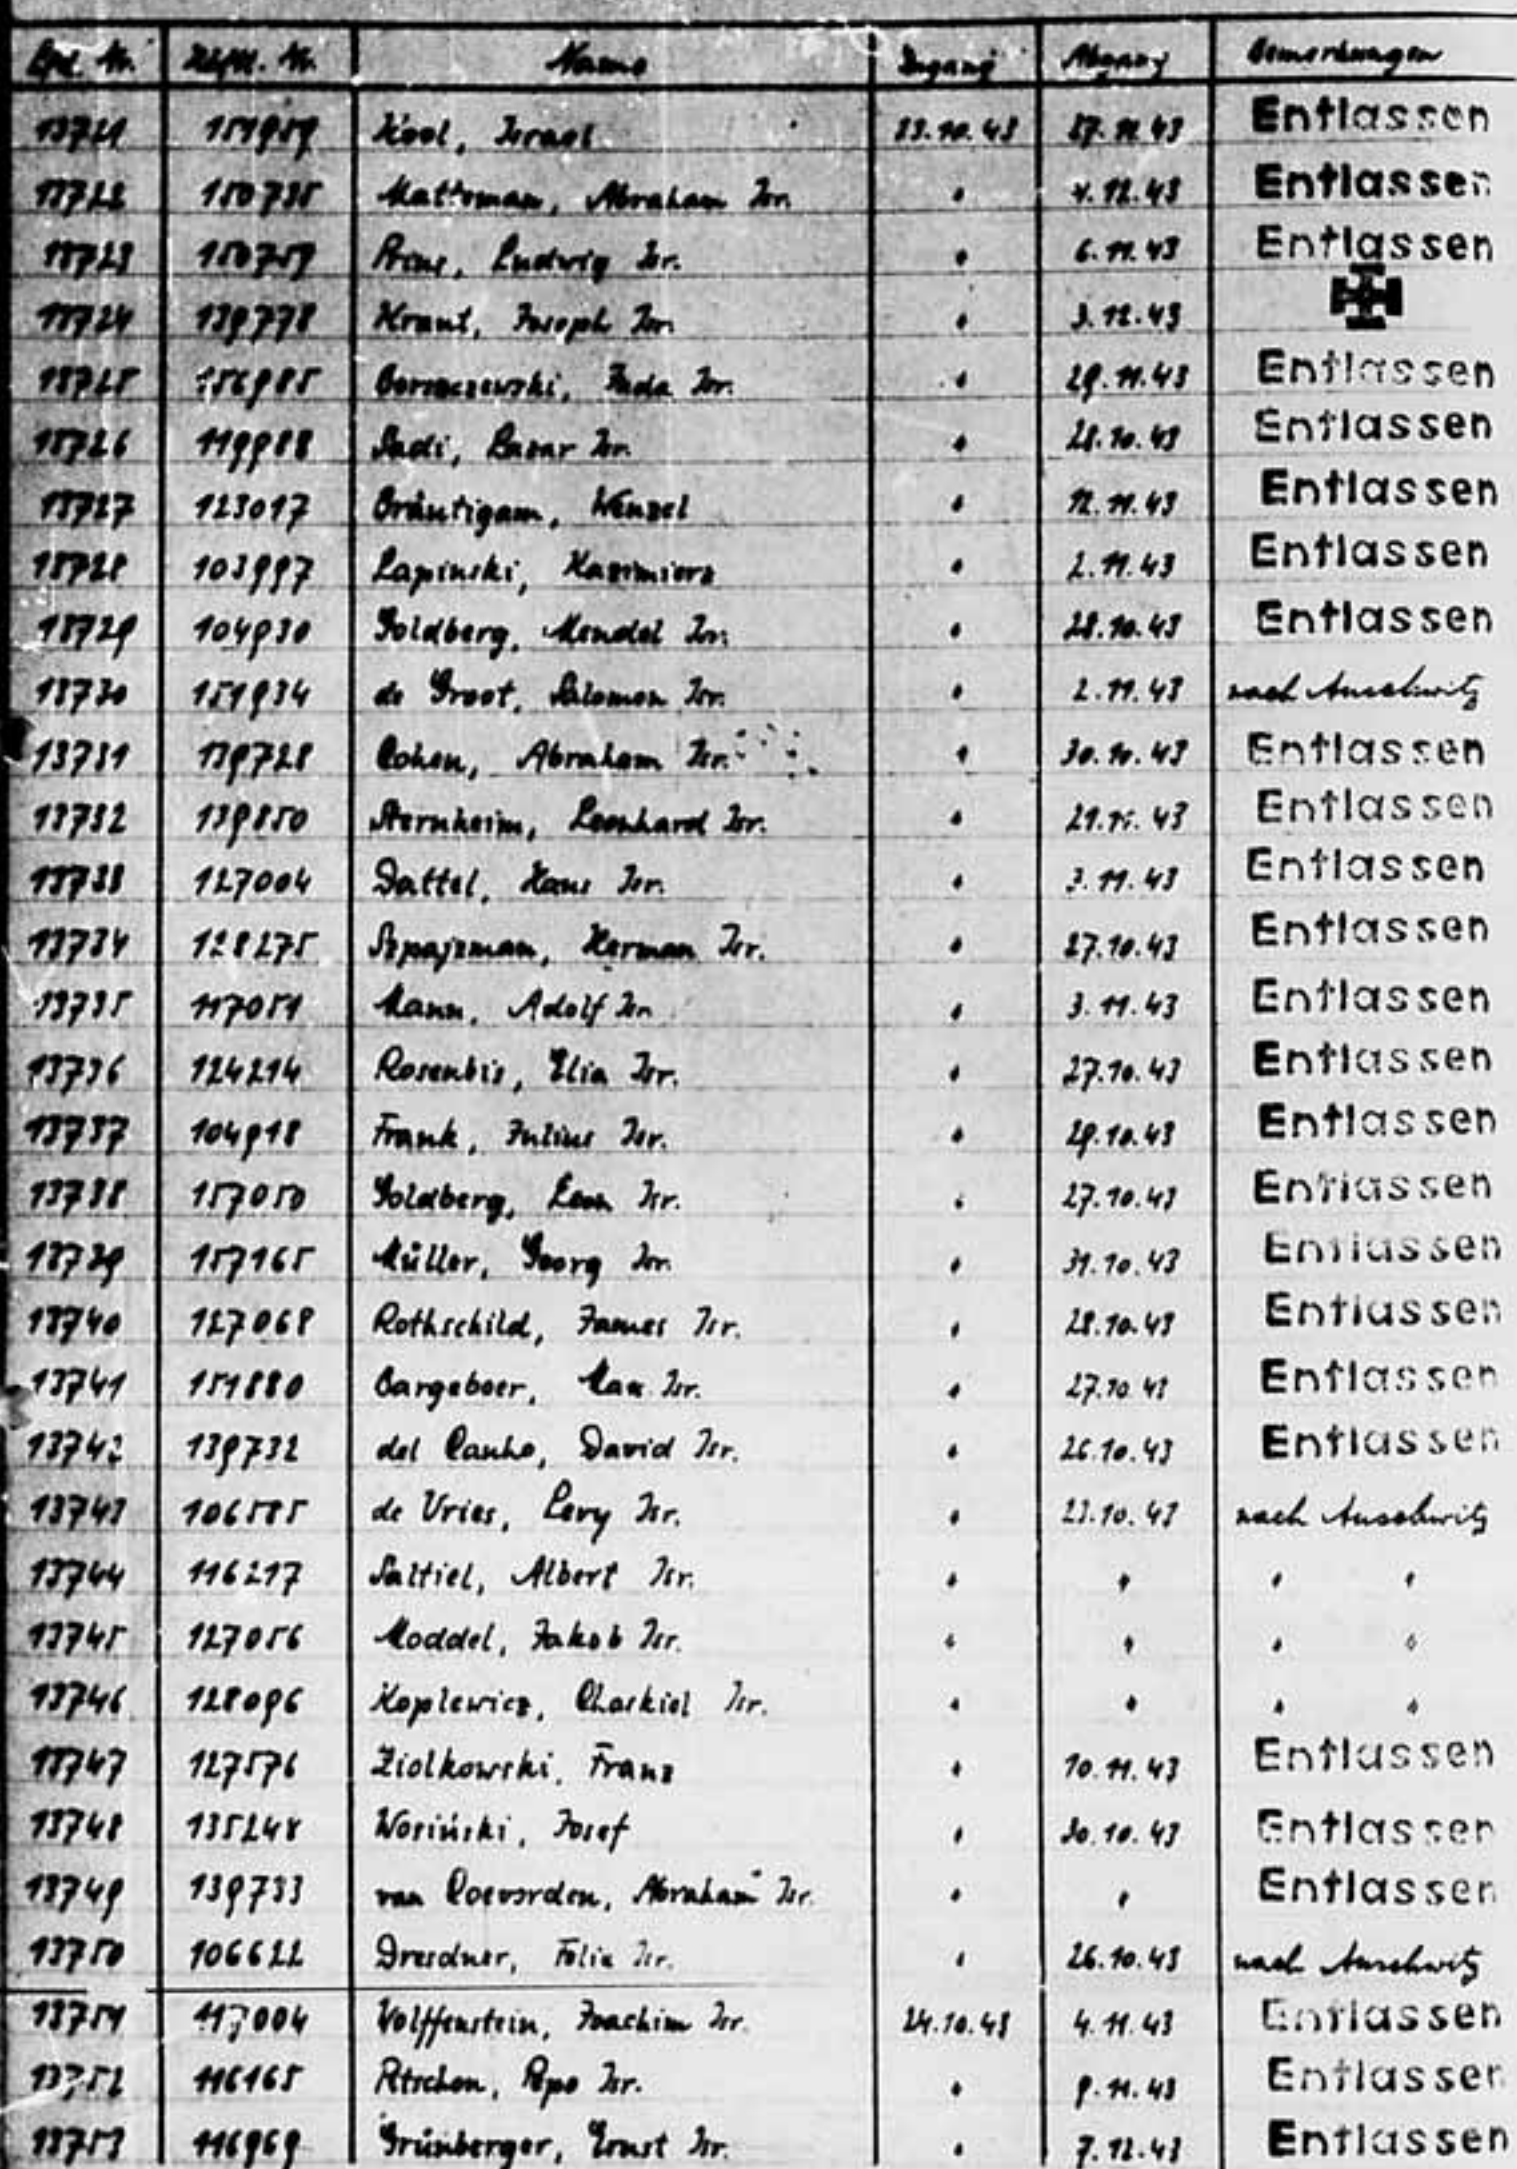 Lfd. Nr. Häftl. Nr. Name Zugang Abgang Bemerkungen
13721 151959 Kool, Israel 23.10.43 27.11.43 Entlassen
13722 150735 Abraham Isr. " 4.12.43 Entlassen
13723 150759 Prins, Ludwig Isr. " 6.11.43 Entlassen
13724 139778 Kraut, Joseph Isr. " 3.12.43
13725 156985 Juda Isr. " 29.11.43 Entlassen
13726 119988 Sadi, Lazar Isr. " 28.10.43 Entlassen
13727 123017 Bräutigam, Wenzel " 12.11.43 Entlassen
13728 103997 Lapinski, Kazimierz " 2.11.43 Entlassen
13729 104930 Goldberg, Mendel Isr. " 28.10.43 Entlassen
13730 151934 de Groot, Salomon Isr. " 2.11.43 nach Auschwitz
13731 139728 Cohen, Abraham Isr. " 30.10.43 Entlassen
13732 139850 Sternheim, Leonhard Isr. " Entlassen
13733 127004 Dattel, Hans Isr. " 3.11.43 Entlassen
13734 128275 Szpajzman, Herman Isr. " 27.10.43 Entlassen
13735 117051 Mann, Adolf Isr. " 3.11.43 Entlassen
13736 124214 Elia Isr. " 27.10.43 Entlassen
13737 104918 Frank, Julius Isr. " 29.10.43 Entlassen
13738 157050 Goldberg, Leon Isr. " 27.10.43 Entlassen
13739 157165 Müller, Georg Isr. " 31.10.43 Entlassen
13740 127068 Rothschild, James Isr. " 28.10.43 Entlassen
13741 151880 Bargeboer, Max Isr. " 27.10.43 Entlassen
13742 139732 del Canho, David Isr. " 26.10.43 Entlassen
13743 106585 de Vries, Levy Isr. " 23.10.43 nach Auschwitz
13744 116217 Saltiel, Albert Isr. " " " "
13745 127056 Moddel, Jakob Isr. " " " "
13746 128096 Koplewicz, Chaskiel Isr. " " " "
13747 127576 Ziolkowski, Franz " 10.11.43 Entlassen
13748 135248 Wosiński, Josef " 30.10.43 Entlassen
13749 139733 van Coevorden, Abraham Isr. " " Entlassen
13750 106622 Dresdner, Felix Isr. " 26.10.43 nach Auschwitz
13751 117004 Wolffenstein, Joachim Isr. 24.10.43 4.11.43 Entlassen
13752 116165 Pepo Isr. " 9.11.43 Entlassen
13753 116969 Grünberger, Ernst Isr. " 7.12.43 Entlassen